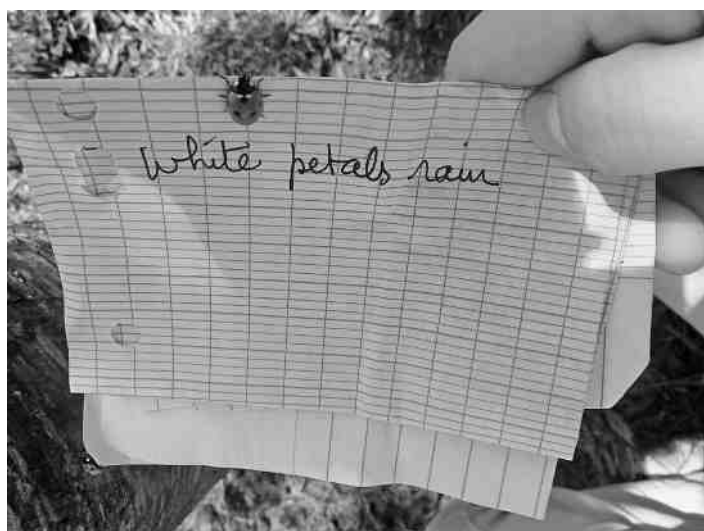 white petals rain